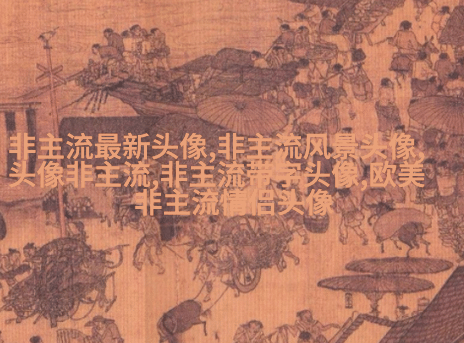 非主流最新头像,非主流风景头像,
头像非主流,非主流带字头像,欧美
非主流情侣头像